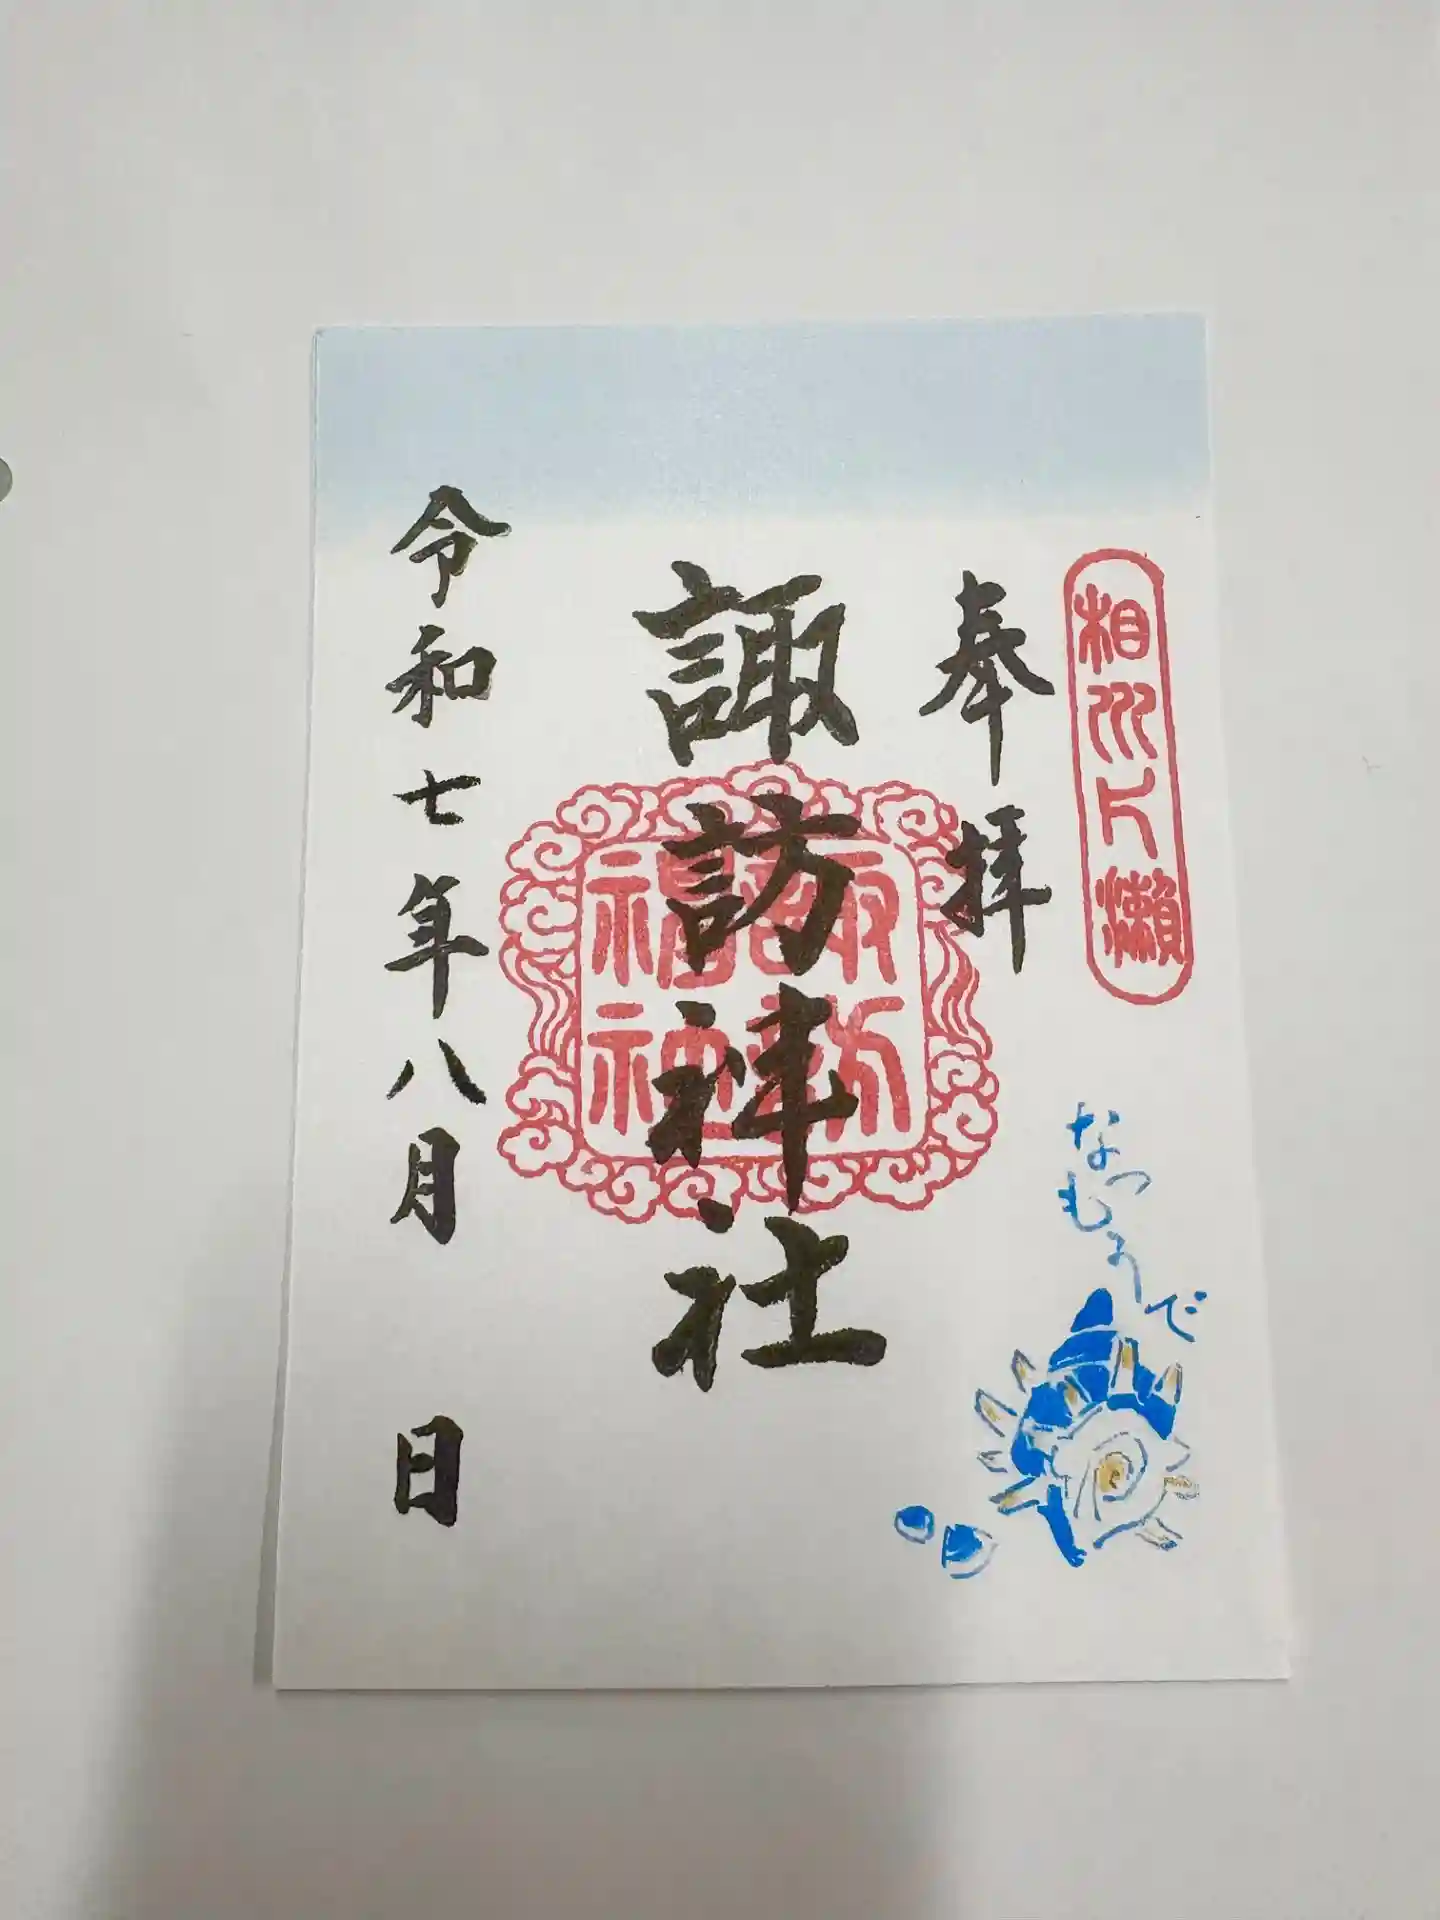 相州片瀬
奉拝
なつ
もうで
諏訪神社
令和七年八月 日